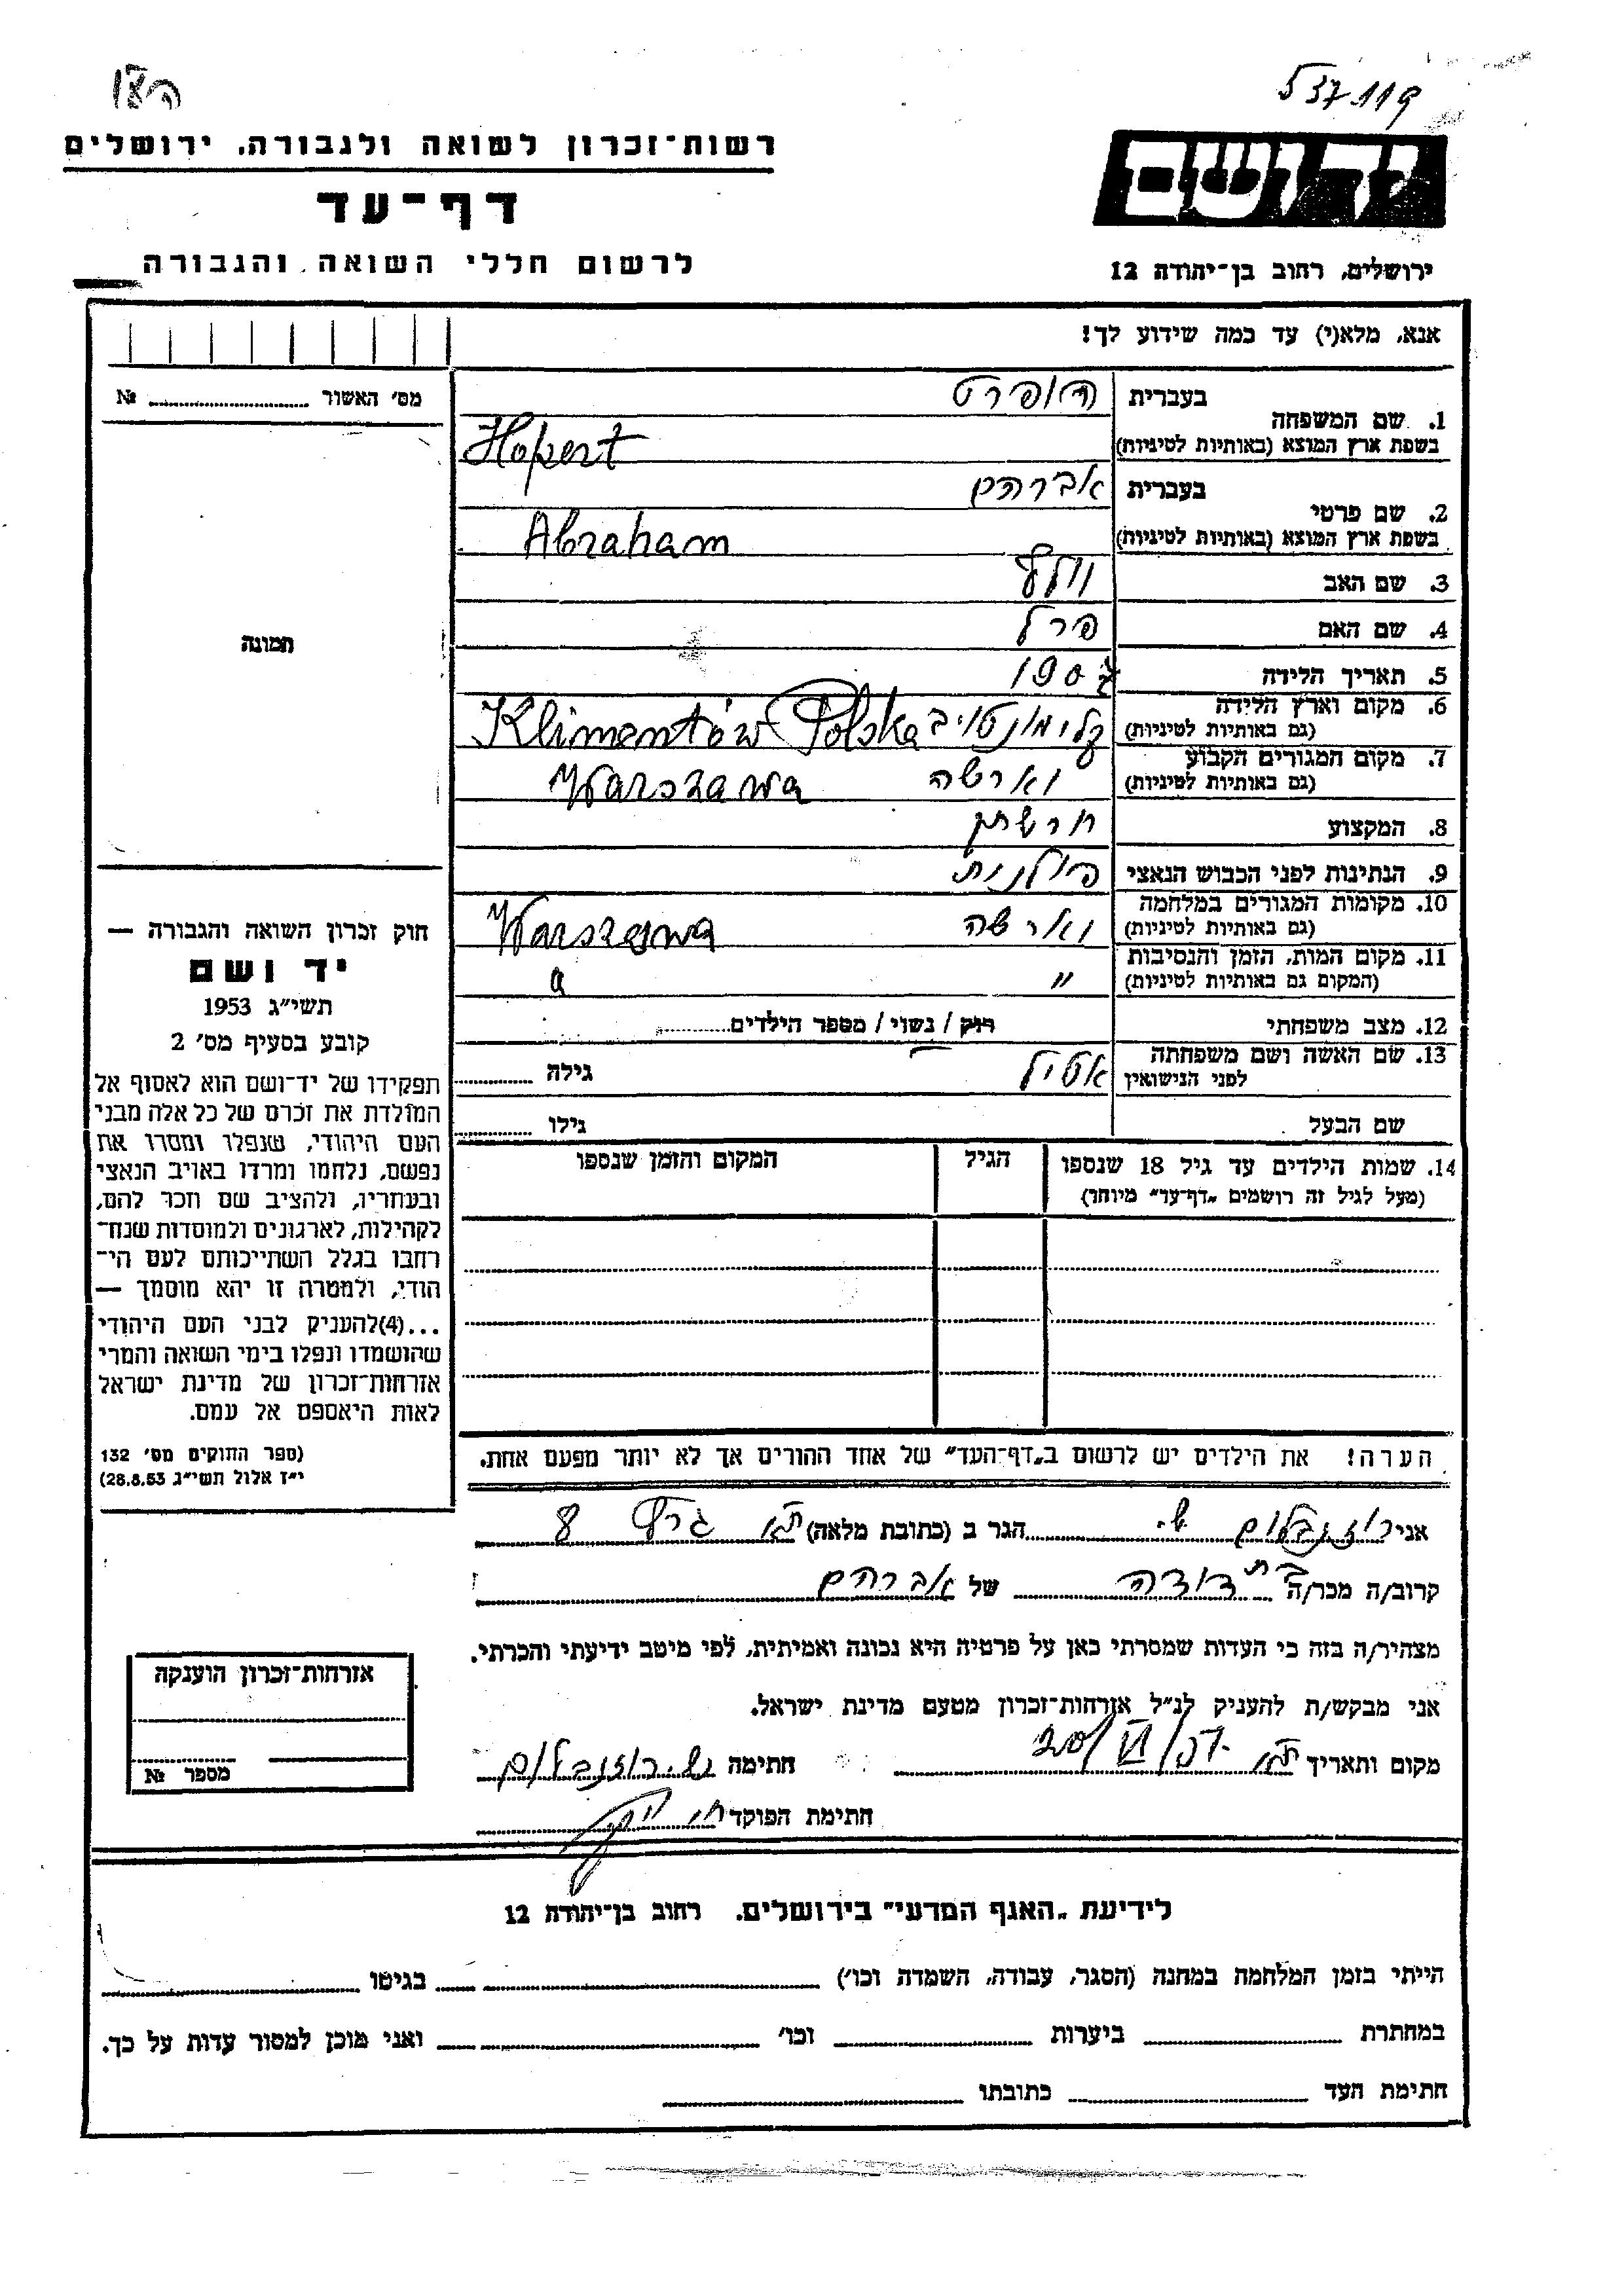 537119
רשות־זכרון לשואה ולגבורה, ירושלים
דף־עד
לרשום חללי השואה והגבורה
יד ושם
ירושלים, רחוב בן־יהודה 12
אנא, מלא(י) עד כמה שידוע לך!
מס׳ האשור № ..........
1. שם המשפחה בעברית הופרט
בשפת ארץ המוצא (באותיות לטיניות) Hopert
2. שם פרטי בעברית אברהם
בשפת ארץ המוצא (באותיות לטיניות) Abraham
3. שם האב וולף
4. שם האם פרל
5. תאריך הלידה 1907
6. מקום וארץ הלידה (גם באותיות לטיניות) קלימונטוב Klimentów Polska
7. מקום המגורים הקבוע (גם באותיות לטיניות) וארשה Warszawa
8. המקצוע
9. הנתינות לפני הכבוש הנאצי פולנית
10. מקומות המגורים במלחמה (גם באותיות לטיניות) וארשה Warszawa
11. מקום המות, הזמן והנסיבות (המקום גם באותיות לטיניות) "
12. מצב משפחתי רוק / נשוי / מספר הילדים..........
13. שם האשה ושם משפחתה לפני הנישואין גילה ..........
שם הבעל גילו ..........
14. שמות הילדים עד גיל 18 שנספו
(מעל לגיל זה רושמים „דף־עד" מיוחד)
הגיל
המקום והזמן שנספו
הערה! את הילדים יש לרשום ב„דף־העד" של אחד ההורים אך לא יותר מפעם אחת.
תמונה
חוק זכרון השואה והגבורה —
יד ושם
תשי״ג 1953
קובע בסעיף מס׳ 2
תפקידו של יד־ושם הוא לאסוף אל
המולדת את זכרם של כל אלה מבני
העם היהודי, שנפלו ומסרו את
נפשם, נלחמו ומרדו באויב הנאצי
ובעוזריו, ולהציב שם וזכר להם,
לקהילות, לארגונים ולמוסדות שנח־
רבו בגלל השתייכותם לעם הי־
הודי, ולמטרה זו יהא מוסמך —
...(4) להעניק לבני העם היהודי
שהושמדו ונפלו בימי השואה והמרי
אזרחות־זכרון של מדינת ישראל
לאות היאספם אל עמם.
(ספר החוקים מס׳ 132
י״ז אלול תשי״ג 28.8.53)
אני רוזנבלום ש. הגר ב (כתובת מלאה) ת״א 8
קרוב/ה מכר/ה בת דודה של אברהם
מצהיר/ה בזה כי העדות שמסרתי כאן על פרטיה היא נכונה ואמיתית, לפי מיטב ידיעתי והכרתי.
אני מבקש/ת להעניק לנ״ל אזרחות־זכרון מטעם מדינת ישראל.
מקום ותאריך ת״א 20/VI/57 חתימה ש. רוזנבלום
חתימת הפוקד
אזרחות־זכרון הוענקה
מספר №
לידיעת „האגף המדעי" בירושלים, רחוב בן־יהודה 12
הייתי בזמן המלחמה במחנה (הסגר, עבודה, השמדה וכו׳) .......... בגיטו ..........
במחתרת .......... ביערות .......... וכו׳ .......... ואני מוכן למסור עדות על כך.
חתימת העד .......... כתובתו ..........